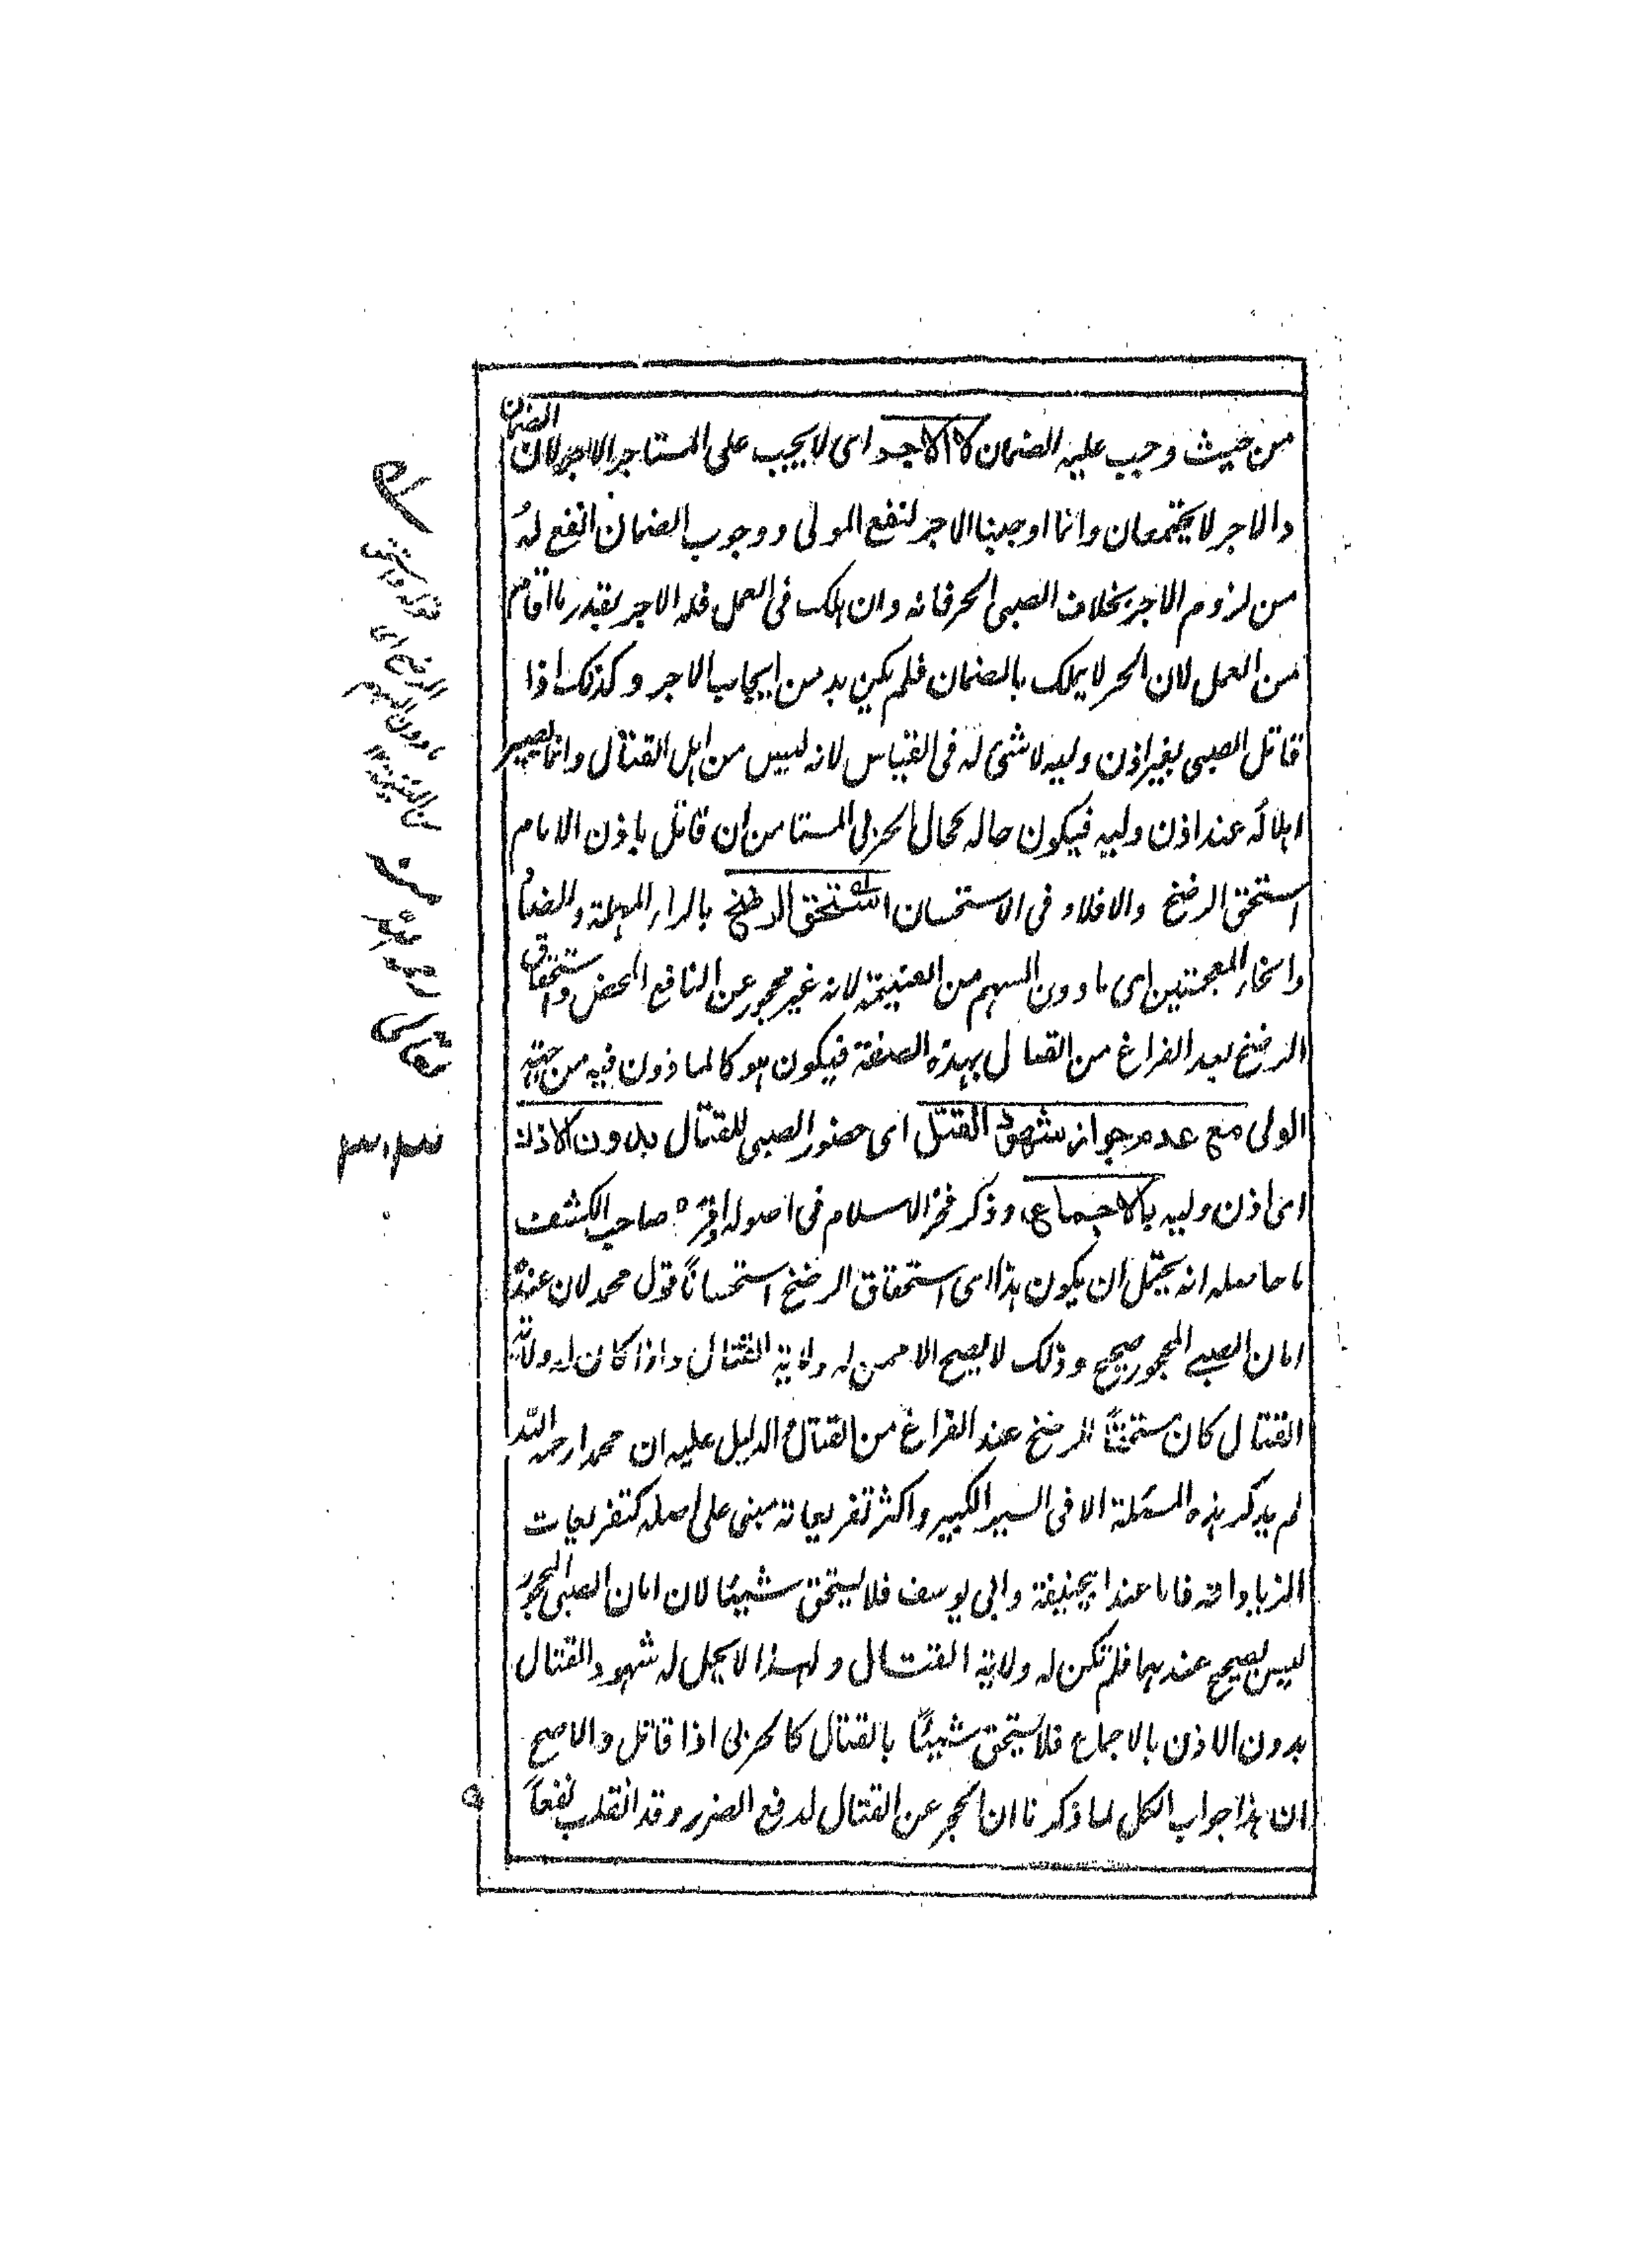 من حيث وجب عليه الضمان لا الاجر اى لا يجب على المستاجر الاجر لان الضمان
والاجر لا يجتمعان وانما اوجبنا الاجر لنفع المولى ووجوب الضمان انفع له
من لزوم الاجر بخلاف الصبى الحر فانه وان هلك فى العمل فله الاجر بقدر ما اقام
من العمل لان الحر لا يملك بالضمان فلم يكن بد من ايجاب الاجر وكذلك اذا
قاتل الصبى بغير اذن وليه لا شىء له فى القياس لانه ليس من اهل القتال وانما يصير
اهلا له عند اذن وليه فيكون حاله كحال الحربى المستامن ان قاتل باذن الامام
استحق الرضخ والا فلا و فى الاستحسان استحق الرضخ بالراء المهملة والضاد
والخاء المعجمتين اى ما دون السهم من الغنيمة لانه غير محجور عن النافع المحض واستحقاق
الرضخ بعد الفراغ من القتال بهذه الصفة فيكون هو كالماذون فيه من جهة
الولى مع عدم جواز شهود القتل اى حضور الصبى للقتال بدون الاذن
اى اذن وليه بالاجماع وذكر فخر الاسلام فى اصوله واقره صاحب الكشف
ما حاصله انه يحتمل ان يكون هذا اى استحقاق الرضخ استحسانًا قول محمد لان عنده
امان الصبى المحجور صحيح وذلك لا يصح الا ممن له ولاية القتال واذا كان له ولاية
القتال كان مستحقًا للرضخ عند الفراغ من القتال الدليل عليه ان محمدا رحمه الله
لم يذكر هذه المسئلة الا فى السير الكبير واكثر تفريعاته مبنى على اصله كتفريعات
الزيادات فاما عند ابيحنيفة وابى يوسف فلا يستحق شيئا لان امان الصبى المحجور
ليس بصحيح عندهما فلم تكن له ولاية القتال ولهذا لا يحل له شهود القتال
بدون الاذن بالاجماع فلا يستحق شيئًا بالقتال كالحربى اذا قاتل والاصح
ان هذا جواب الكل لما ذكرنا ان الحجر عن القتال لدفع الضرر وقد انقلب نفعًا
قوله واستحق
الرضخ اى
ما دون السهم
من الغنيمة